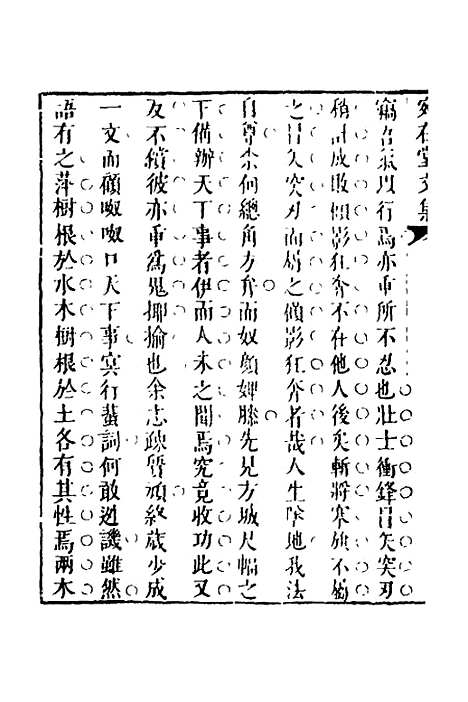 窮在堂文集
竊君氣以行焉亦重所不忍也壯士衝鋒冒矢突刃
稍計成敗傾影狂奔不在他人後矣斬將搴旗不蜀
之冒久突刃而蜀之傾影狂奔者哉人生墮地我法
自尊柰何總角方弁而奴顏婢膝先見方城尺幅之
下備辦天丁事者伊而人未之聞焉究竟收功此又
友不償彼亦重爲鬼揶揄也余志疎質頑終歲少成
一文而頫呶呶口天下事冥行蜚詞何敢逃譏雖然
語有之萍樹根於水木樹根於土各有其性焉兩木